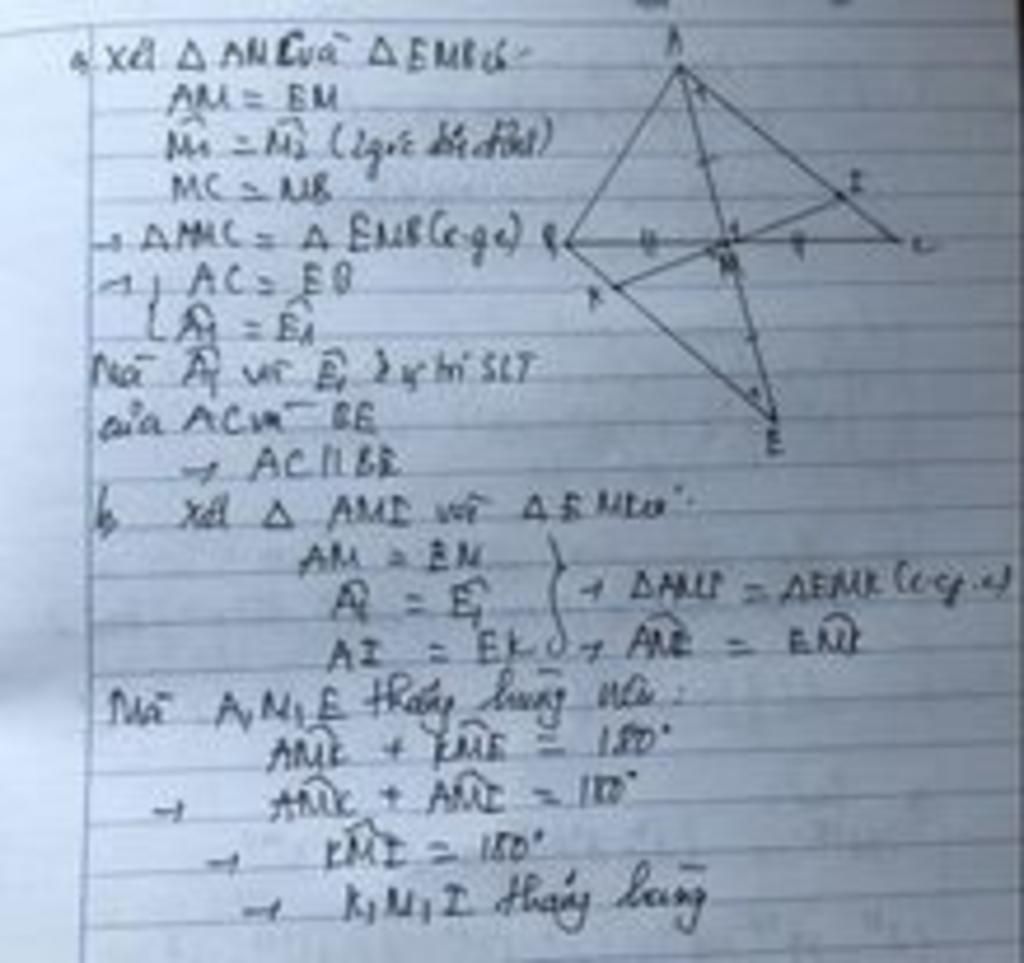 a, Xét Δ AMC và Δ EMB có:
AM = EM
M̂₁ = M̂₂ (2 góc đối đỉnh)
MC = MB
→ Δ AMC = Δ EMB (c.g.c)
→ { AC = EB
Â₁ = Ê₁
Mà Â₁ và Ê₁ ở vị trí SLT
của AC và BE
→ AC // BE
b, Xét Δ AMI và Δ EMK có:
AM = EM
Â₁ = Ê₁
AI = EK
} → ΔAMI = ΔEMK (c.g.c)
→ AMI = EMK
Mà A, M, E thẳng hàng nên:
AMK + KME = 180°
→ AMK + AMI = 180°
→ KMI = 180°
→ K, M, I thẳng hàng
A
I
B
M
C
K
E